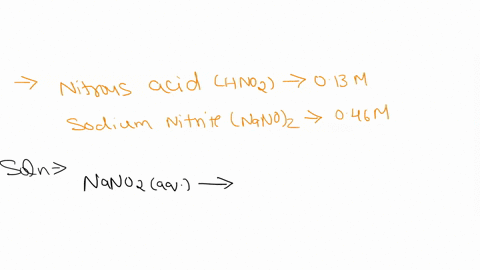 → Nitrous acid (HNO2) → 0.13 M
Sodium Nitrite (NaNO)2 → 0.46M
Soln ⇒
NaNO2 (aq.) →